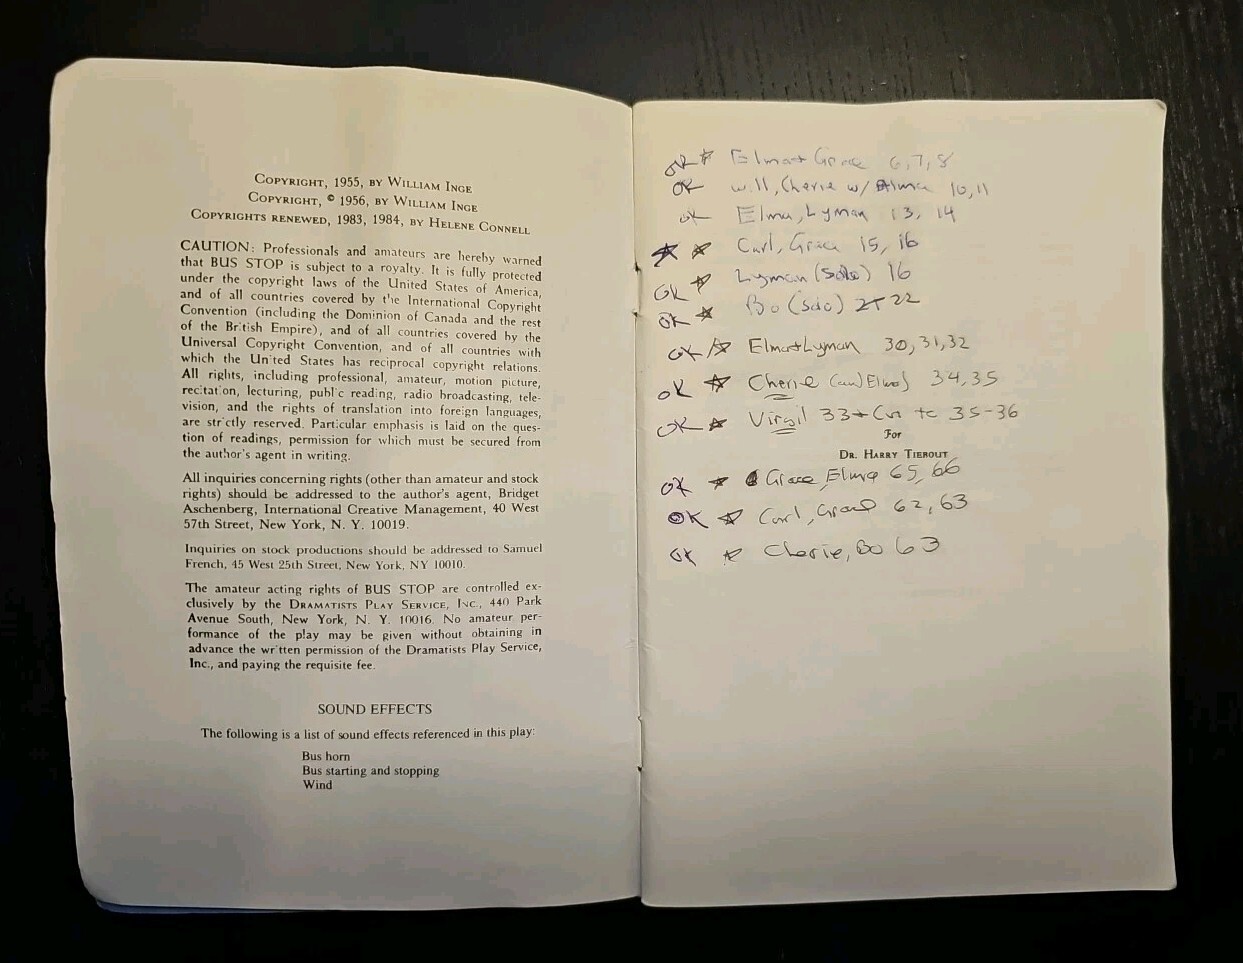 COPYRIGHT, 1955, BY WILLIAM INGE
COPYRIGHT, © 1956, BY WILLIAM INGE
COPYRIGHTS RENEWED, 1983, 1984, BY HELENE CONNELL
CAUTION: Professionals and amateurs are hereby warned
that BUS STOP is subject to a royalty. It is fully protected
under the copyright laws of the United States of America,
and of all countries covered by the International Copyright
Convention (including the Dominion of Canada and the rest
of the British Empire), and of all countries covered by the
Universal Copyright Convention, and of all countries with
which the United States has reciprocal copyright relations.
All rights, including professional, amateur, motion picture,
recitation, lecturing, public reading, radio broadcasting, tele-
vision, and the rights of translation into foreign languages,
are strictly reserved. Particular emphasis is laid on the ques-
tion of readings, permission for which must be secured from
the author's agent in writing.
All inquiries concerning rights (other than amateur and stock
rights) should be addressed to the author's agent, Bridget
Aschenberg, International Creative Management, 40 West
57th Street, New York, N. Y. 10019.
Inquiries on stock productions should be addressed to Samuel
French, 45 West 25th Street, New York, NY 10010.
The amateur acting rights of BUS STOP are controlled ex-
clusively by the DRAMATISTS PLAY SERVICE, INC., 440 Park
Avenue South, New York, N. Y. 10016. No amateur per-
formance of the play may be given without obtaining in
advance the written permission of the Dramatists Play Service,
Inc., and paying the requisite fee.
SOUND EFFECTS
The following is a list of sound effects referenced in this play:
Bus horn
Bus starting and stopping
Wind
OK ☆ Elma + Grace 6, 7, 8
OK Will, Cherie w/ Elma 10, 11
OK Elma, Lyman 13, 14
★ ☆ Carl, Grace 15, 16
OK ☆ Lyman (solo) 16
OK ☆ Bo (solo) 22
OK ☆ Elma + Lyman 30, 31, 32
OK ☆ Cherie (w/ Elma) 34, 35
OK ☆ Virgil 33 + Cut to 35-36
For
DR. HARRY TIEBOUT
OK ☆ Grace, Elma 65, 66
OK ☆ Carl, Grace 62, 63
OK ☆ Cherie, Bo 63